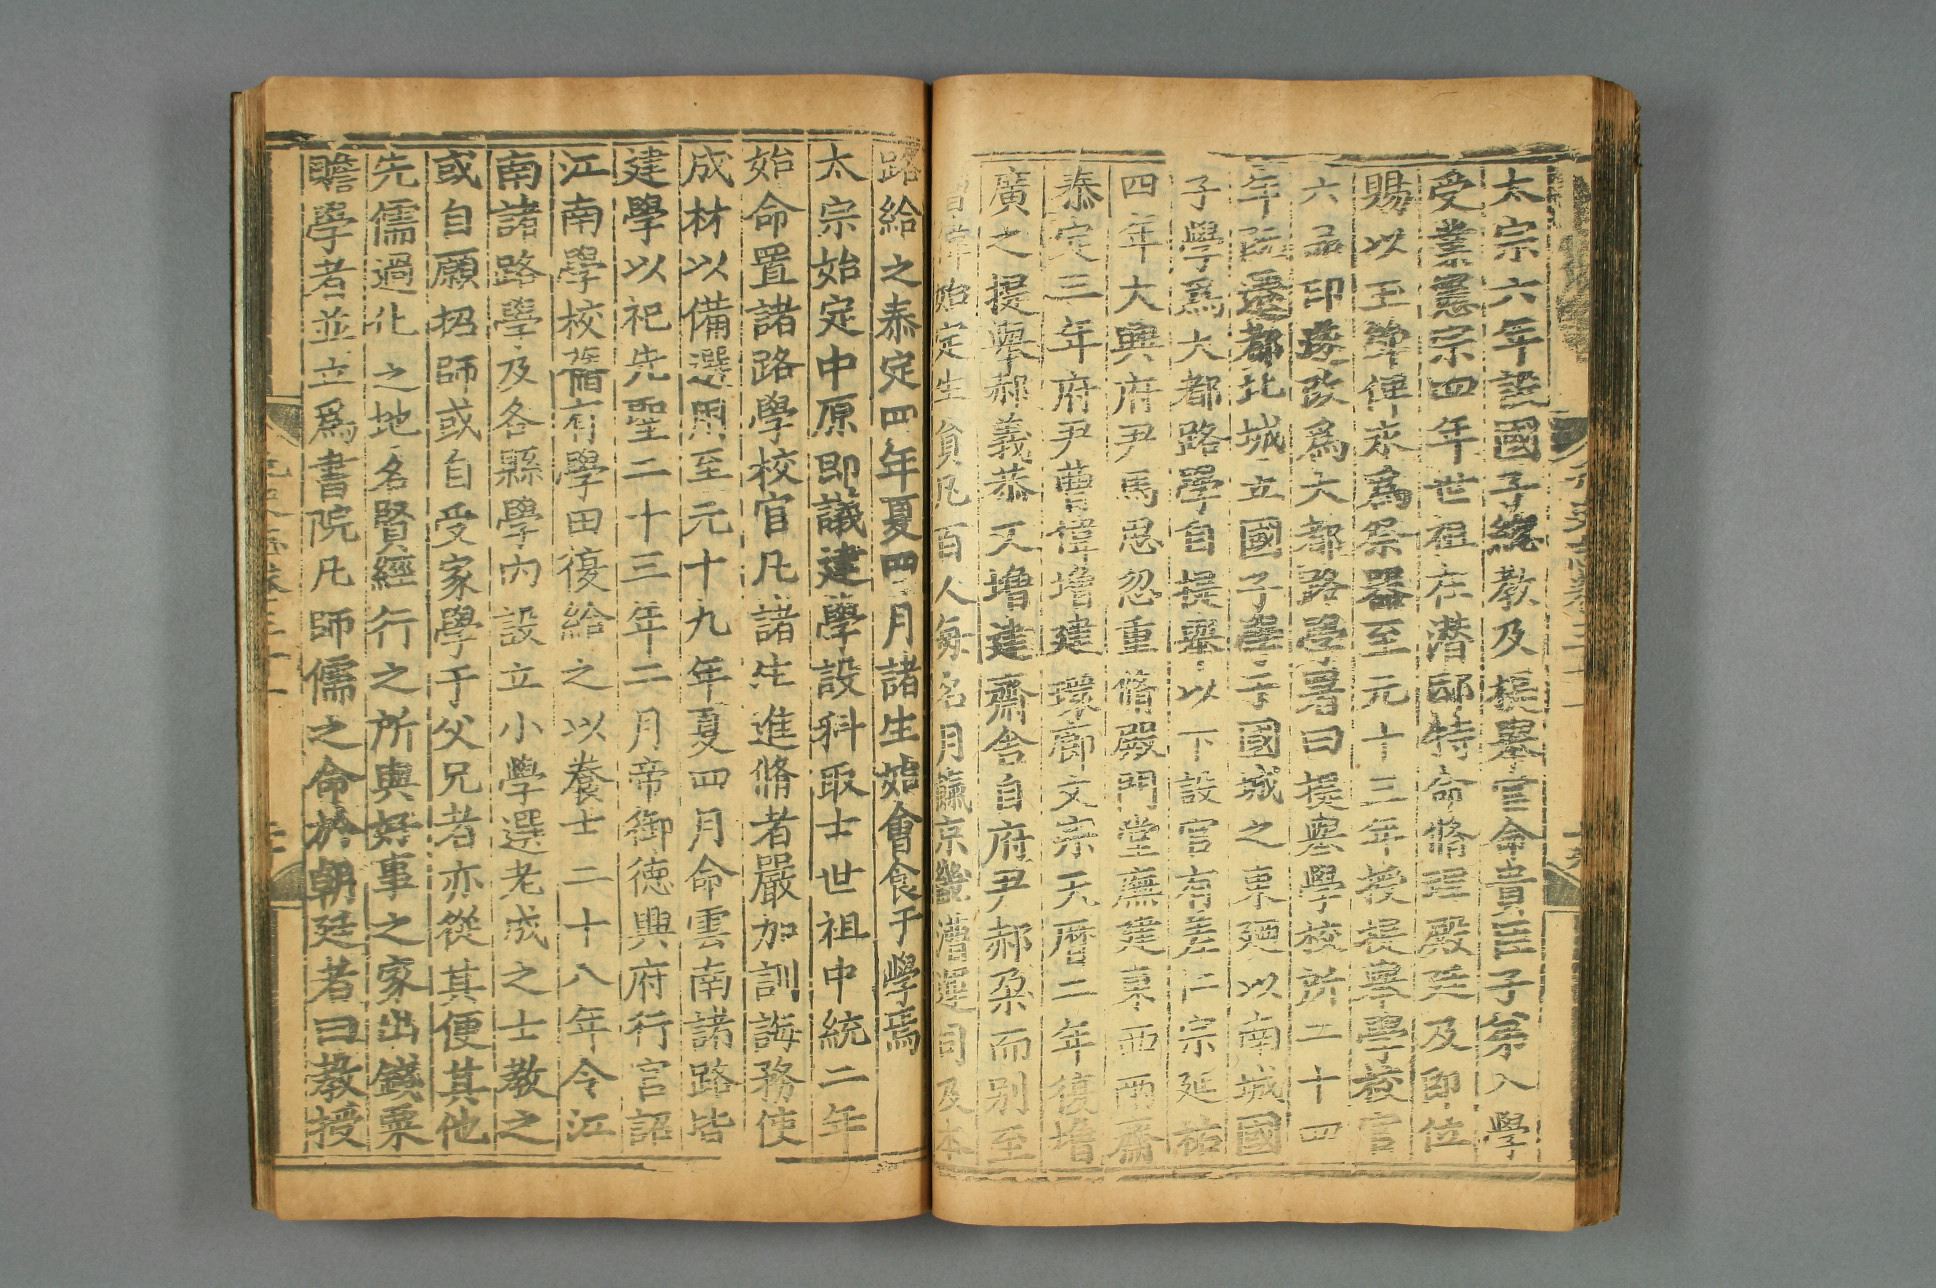 太宗六年設國子總教及提舉官命貴臣子弟入學
受業憲宗四年世祖在潛邸特命脩理殿廷及即位
賜以玉斚俾永爲祭器至元十三年授提舉學校官
六品印遂改爲大都路學署曰提舉學校所二十四
年旣遷都北城立國子學于國城之東廼以南城國
子學爲大都路學自提舉以下設官有差仁宗延祐
四年大興府尹馬思忽重脩殿門堂廡建東西兩齋
泰定三年府尹曹偉增建環廊文宗天曆二年復增
廣之提舉郝義恭又增建齋舍自府尹郝朶而别至
始定生員凡百人每名月餼京畿漕運司及本
路給之泰定四年夏四月諸生始會食于學焉
太宗始定中原即議建學設科取士世祖中統二年
始命置諸路學校官凡諸生進脩者嚴加訓誨務使
成材以備選用至元十九年夏四月命雲南諸路皆
建學以祀先聖二十三年二月帝御德興府行宮詔
江南學校舊有學田復給之以養士二十八年令江
南諸路學及各縣學內設立小學選老成之士教之
或自願招師或自受家學于父兄者亦從其便其他
先儒過化之地名賢經行之所與好事之家出錢粟
贍學者並立爲書院凡師儒之命於朝廷者曰教授